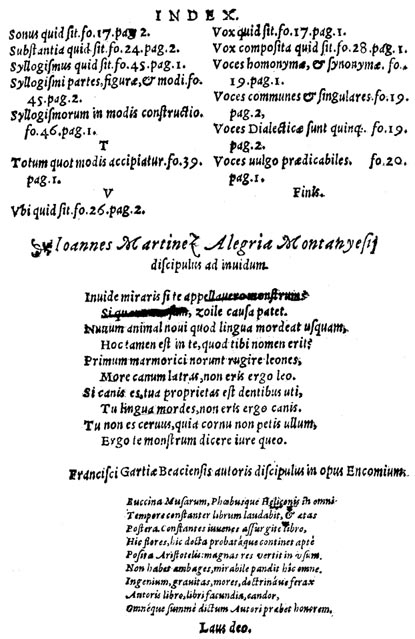 INDEX.
Sonus quid sit.fo.17.pag 2.
Substantia quid sit.fo.24.pag.2.
Syllogismus quid sit.fo.45.pag.1.
Syllogismi partes, figuræ, & modi.fo.
45.pag.2.
Syllogismorum in modis constructio.
fo.46.pag.1.
T
Totum quot modis accipiatur.fo.39.
pag.1.
V
Vbi quid sit.fo.26.pag.2.
Vox quid sit.fo.17.pag.1.
Vox composita quid sit.fo.28.pag.1.
Voces homonymæ, & synonymæ. fo.
19.pag.1.
Voces communes & singulares.fo.19.
pag.2,
Voces Dialecticæ sunt quinq;. fo.19.
pag.2.
Voces uulgo prædicabiles. fo.20.
pag.1.
Finis.
Ioannes Martinez Alegria Montanyesij
discipulus ad inuidum.
Inuide miraris si te appellauero monstrum:
zoile causa patet.
Nunum animal noui quod lingua mordeat usquam,
Hoc tamen est in te, quod tibi nomen erit?
Primum marmorici norunt rugire leones,
More canum latras, non eris ergo leo.
Si canis es, tua proprietas est dentibus uti,
Tu lingua mordes, non eris ergo canis.
Tu non es ceruus, quia cornu non petis ullum,
Ergo te monstrum dicere iure queo.
Francisci Gartiæ Beaciensis autoris discipulus in opus Encomium.
Buccina Musarum, Phœbusque Heliconis in omni
Tempore constanter librum laudabit, & ætas
Postera. Constantes iuuenes assurgite libro,
Hic flores, hic docta probatáque contines aptè
Posita Aristotelis: magnas res vertit in vsum.
Non habet ambages, mirabile pandit hic omne.
Ingenium, grauitas, mores, doctrináue ferax
Autoris libro, libri facundia, candor,
Omnéque summè dictum Autori præbet honorem.
Laus deo.